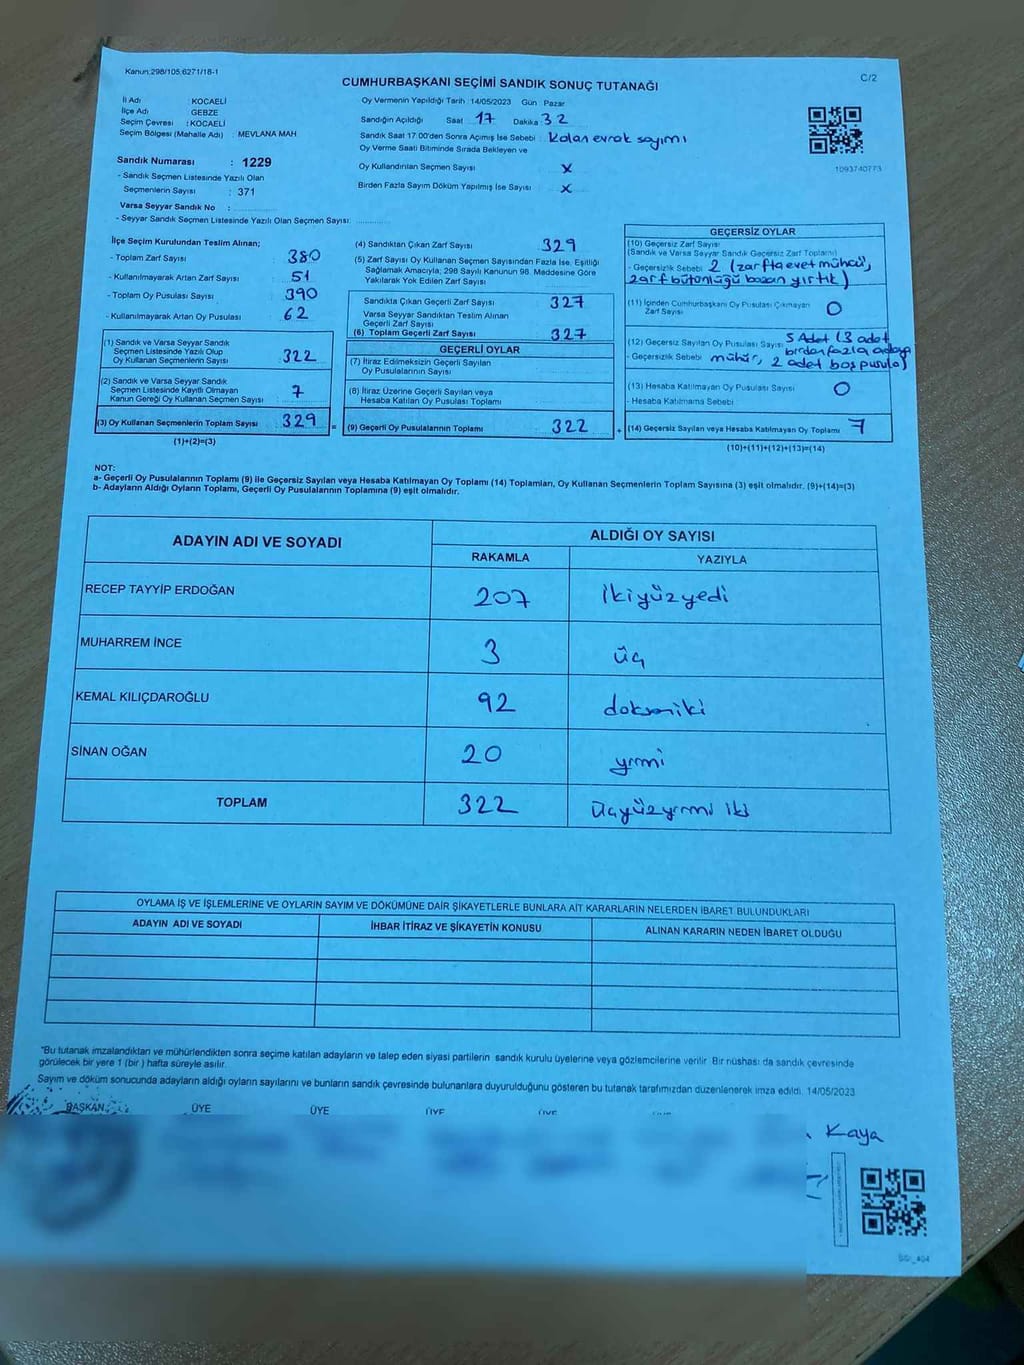 Kanun:298/105;6271/18-1
C/2
CUMHURBAŞKANI SEÇİMİ SANDIK SONUÇ TUTANAĞI
İl Adı : KOCAELİ
İlçe Adı : GEBZE
Seçim Çevresi : KOCAELİ
Seçim Bölgesi (Mahalle Adı) : MEVLANA MAH
Sandık Numarası : 1229
- Sandık Seçmen Listesinde Yazılı Olan
Seçmenlerin Sayısı : 371
Varsa Seyyar Sandık No :
- Seyyar Sandık Seçmen Listesinde Yazılı Olan Seçmen Sayısı:
Oy Vermenin Yapıldığı Tarih 14/05/2023 Gün Pazar
Sandığın Açıldığı Saat 17 Dakika 32
Sandık Saat 17:00'den Sonra Açmış İse Sebebi : Kalan evrak sayımı
Oy Verme Saati Bitiminde Sırada Bekleyen ve
Oy Kullandırılan Seçmen Sayısı X
Birden Fazla Sayım Döküm Yapılmış İse Sayısı X
1093740773
İlçe Seçim Kurulundan Teslim Alınan;
- Toplam Zarf Sayısı : 380
- Kullanılmayarak Artan Zarf Sayısı : 51
- Toplam Oy Pusulası Sayısı : 390
- Kullanılmayarak Artan Oy Pusulası : 62
(1) Sandık ve Varsa Seyyar Sandık
Seçmen Listesinde Yazılı Olup
Oy Kullanan Seçmenlerin Sayısı 322
(2) Sandık ve Varsa Seyyar Sandık
Seçmen Listesinde Kayıtlı Olmayan
Kanun Gereği Oy Kullanan Seçmen Sayısı 7
(3) Oy Kullanan Seçmenlerin Toplam Sayısı 329 =
(1)+(2)=(3)
(4) Sandıktan Çıkan Zarf Sayısı 329
(5) Zarf Sayısı Oy Kullanan Seçmen Sayısından Fazla İse, Eşitliği
Sağlamak Amacıyla; 298 Sayılı Kanunun 98. Maddesine Göre
Yakılarak Yok Edilen Zarf Sayısı
Sandıkta Çıkan Geçerli Zarf Sayısı 327
Varsa Seyyar Sandıktan Teslim Alınan
Geçerli Zarf Sayısı
(6) Toplam Geçerli Zarf Sayısı 327
GEÇERLİ OYLAR
(7) İtiraz Edilmeksizin Geçerli Sayılan
Oy Pusulalarının Sayısı
(8) İtiraz Üzerine Geçerli Sayılan veya
Hesaba Katılan Oy Pusulası Toplamı
(9) Geçerli Oy Pusulalarının Toplamı 322 +
GEÇERSİZ OYLAR
(10) Geçersiz Zarf Sayısı
(Sandık ve Varsa Seyyar Sandık Geçersiz Zarf Toplamı)
- Geçersizlik Sebebi 2 (zarfta evet mührü,
zarf bütünlüğü bozan yırtık)
(11) İçinden Cumhurbaşkanı Oy Pusulası Çıkmayan
Zarf Sayısı 0
(12) Geçersiz Sayılan Oy Pusulası Sayısı 5 Adet (3 adet
- Geçersizlik Sebebi birden fazla adaya
mühür, 2 adet boş pusula)
(13) Hesaba Katılmayan Oy Pusulası Sayısı 0
- Hesaba Katılmama Sebebi
(14) Geçersiz Sayılan veya Hesaba Katılmayan Oy Toplamı 7
(10)+(11)+(12)+(13)=(14)
NOT:
a- Geçerli Oy Pusulalarının Toplamı (9) ile Geçersiz Sayılan veya Hesaba Katılmayan Oy Toplamı (14) Toplamları, Oy Kullanan Seçmenlerin Toplam Sayısına (3) eşit olmalıdır. (9)+(14)=(3)
b- Adayların Aldığı Oyların Toplamı, Geçerli Oy Pusulalarının Toplamına (9) eşit olmalıdır.
ADAYIN ADI VE SOYADI
ALDIĞI OY SAYISI
RAKAMLA YAZIYLA
RECEP TAYYİP ERDOĞAN 207 ikiyüzyedi
MUHARREM İNCE 3 üç
KEMAL KILIÇDAROĞLU 92 doksaniki
SİNAN OĞAN 20 yirmi
TOPLAM 322 üçyüzyirmi iki
OYLAMA İŞ VE İŞLEMLERİNE VE OYLARIN SAYIM VE DÖKÜMÜNE DAİR ŞİKAYETLERLE BUNLARA AİT KARARLARIN NELERDEN İBARET BULUNDUKLARI
ADAYIN ADI VE SOYADI İHBAR İTİRAZ VE ŞİKAYETİN KONUSU ALINAN KARARIN NEDEN İBARET OLDUĞU
"Bu tutanak imzalandıktan ve mühürlendikten sonra seçime katılan adayların ve talep eden siyasi partilerin sandık kurulu üyelerine veya gözlemcilerine verilir. Bir nüshası da sandık çevresinde
görülecek bir yere 1 (bir) hafta süreyle asılır.
Sayım ve döküm sonucunda adayların aldığı oyların sayılarını ve bunların sandık çevresinde bulunanlara duyurulduğunu gösteren bu tutanak tarafımızdan düzenlenerek imza edildi. 14/05/2023
BAŞKAN ÜYE ÜYE ÜYE ÜYE
Kaya